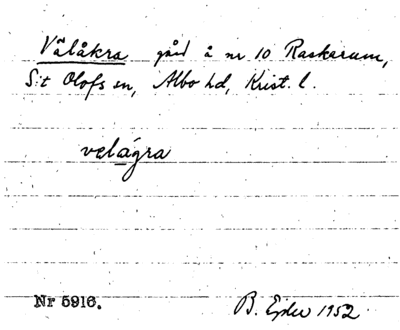 Välåkra gård å nr 10 Raskarum,
S:t Olofs sn, Albo hd, Krist. l.
velågra
Nr 5916.
B. Ejder 1952